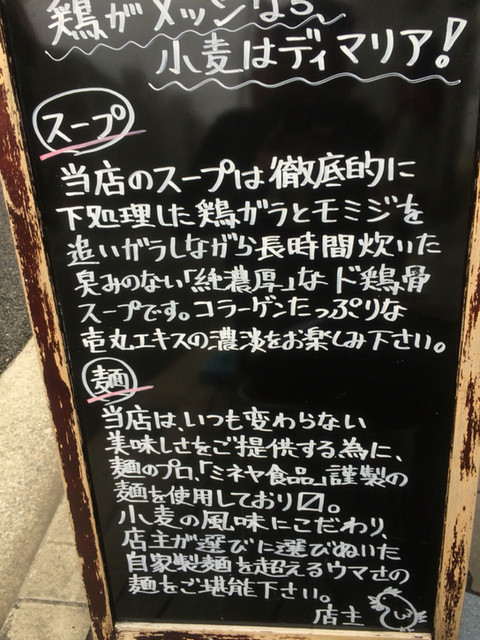 鶏がメッシなら、
小麦はディマリア!
スープ
当店のスープは徹底的に
下処理した鶏ガラとモミジを
追いガラしながら長時間炊いた
臭みのない「純濃厚」なド鶏骨
スープです。コラーゲンたっぷりな
壱丸エキスの濃淡をお楽しみ下さい。
麺
当店は、いつも変わらない
美味しさをご提供する為に、
麺のプロ、「ミネヤ食品」謹製の
麺を使用しており〼。
小麦の風味にこだわり、
店主が選びに選びぬいた
自家製麺を超えるウマさの
麺をご堪能下さい。
店主